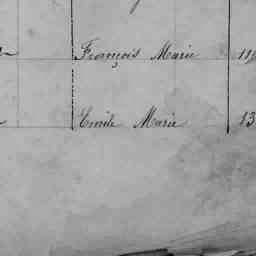 François Marie 11
Emile Marie 13